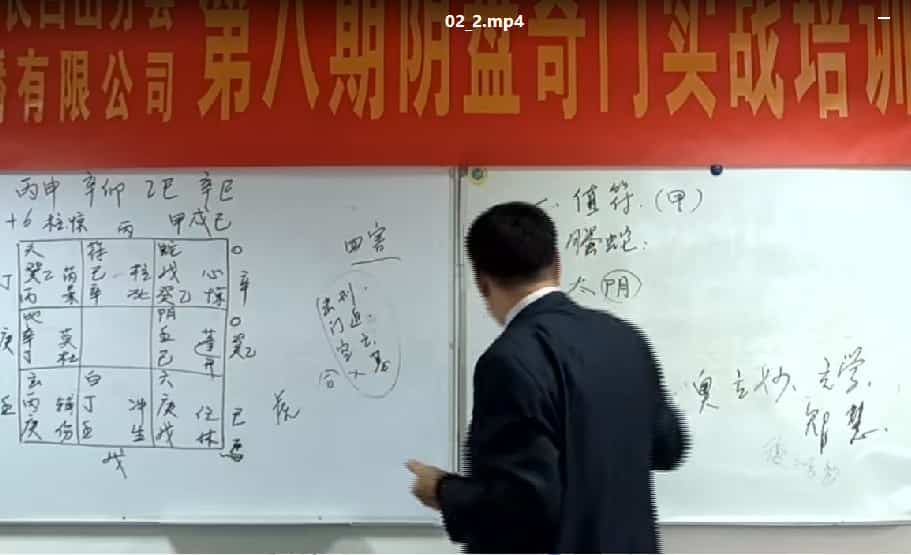 02_2.mp4
长白山分会
有限公司
第八期阴盘奇门实战培训
丙申 辛卯 乙巳 辛巳
+6 柱惊 丙 甲戌己
天 符 蛇 0
丁 癸乙 芮 己 柱 戊 心 辛
丙 景 辛 死 癸乙 惊
地 阴 0
庚 辛 英 壬 蓬 癸乙
丁 杜 己 开
玄 白 六
壬 丙 辅 丁 冲 庚 任 己
庚 伤 壬 生 戊 休
戊
四害
击刑
门迫
空亡
入墓
一、值符.(甲)
螣蛇:
太阴
奥玄妙、玄学、
智慧.